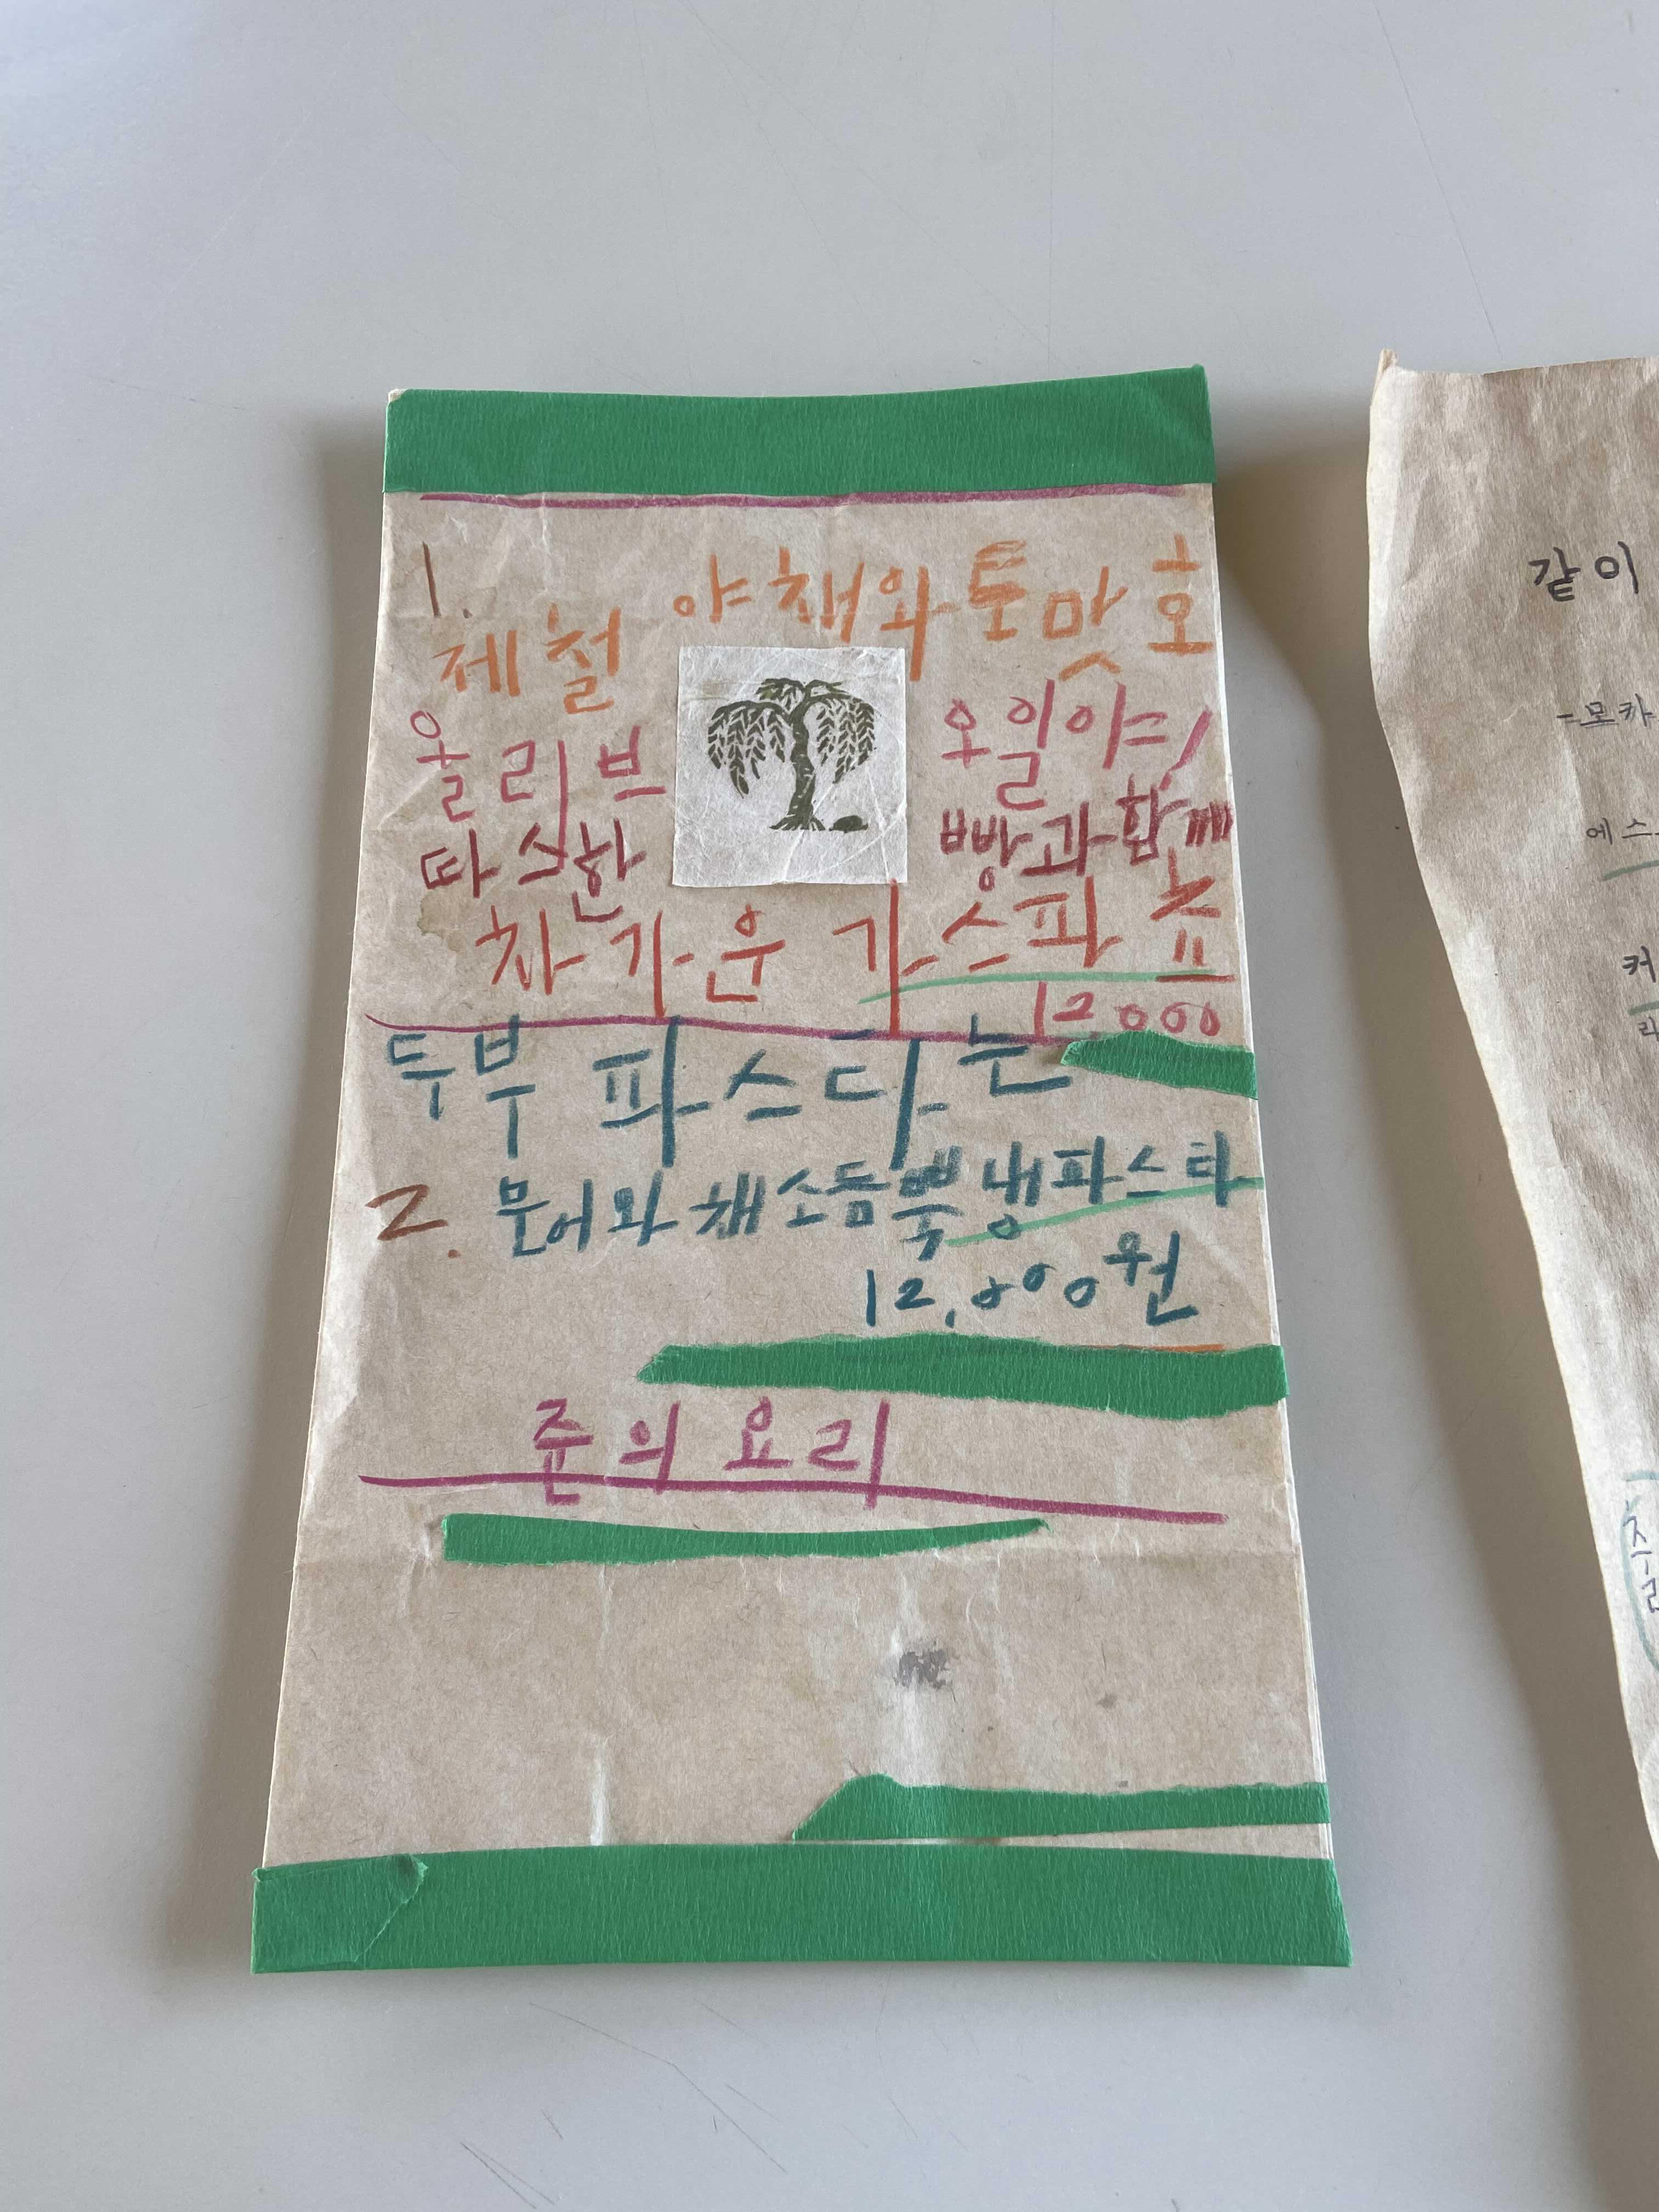 1.
제철 야채와 토맛호
올리브 오일이ㅋ!
따스한 빵과 함께
차가운 가스파쵸
12,000
두부 파스타는
2. 문어와 채소듬뿍 냉파스타
12,000원
쥰의 요리
같이
-모카
에스
커